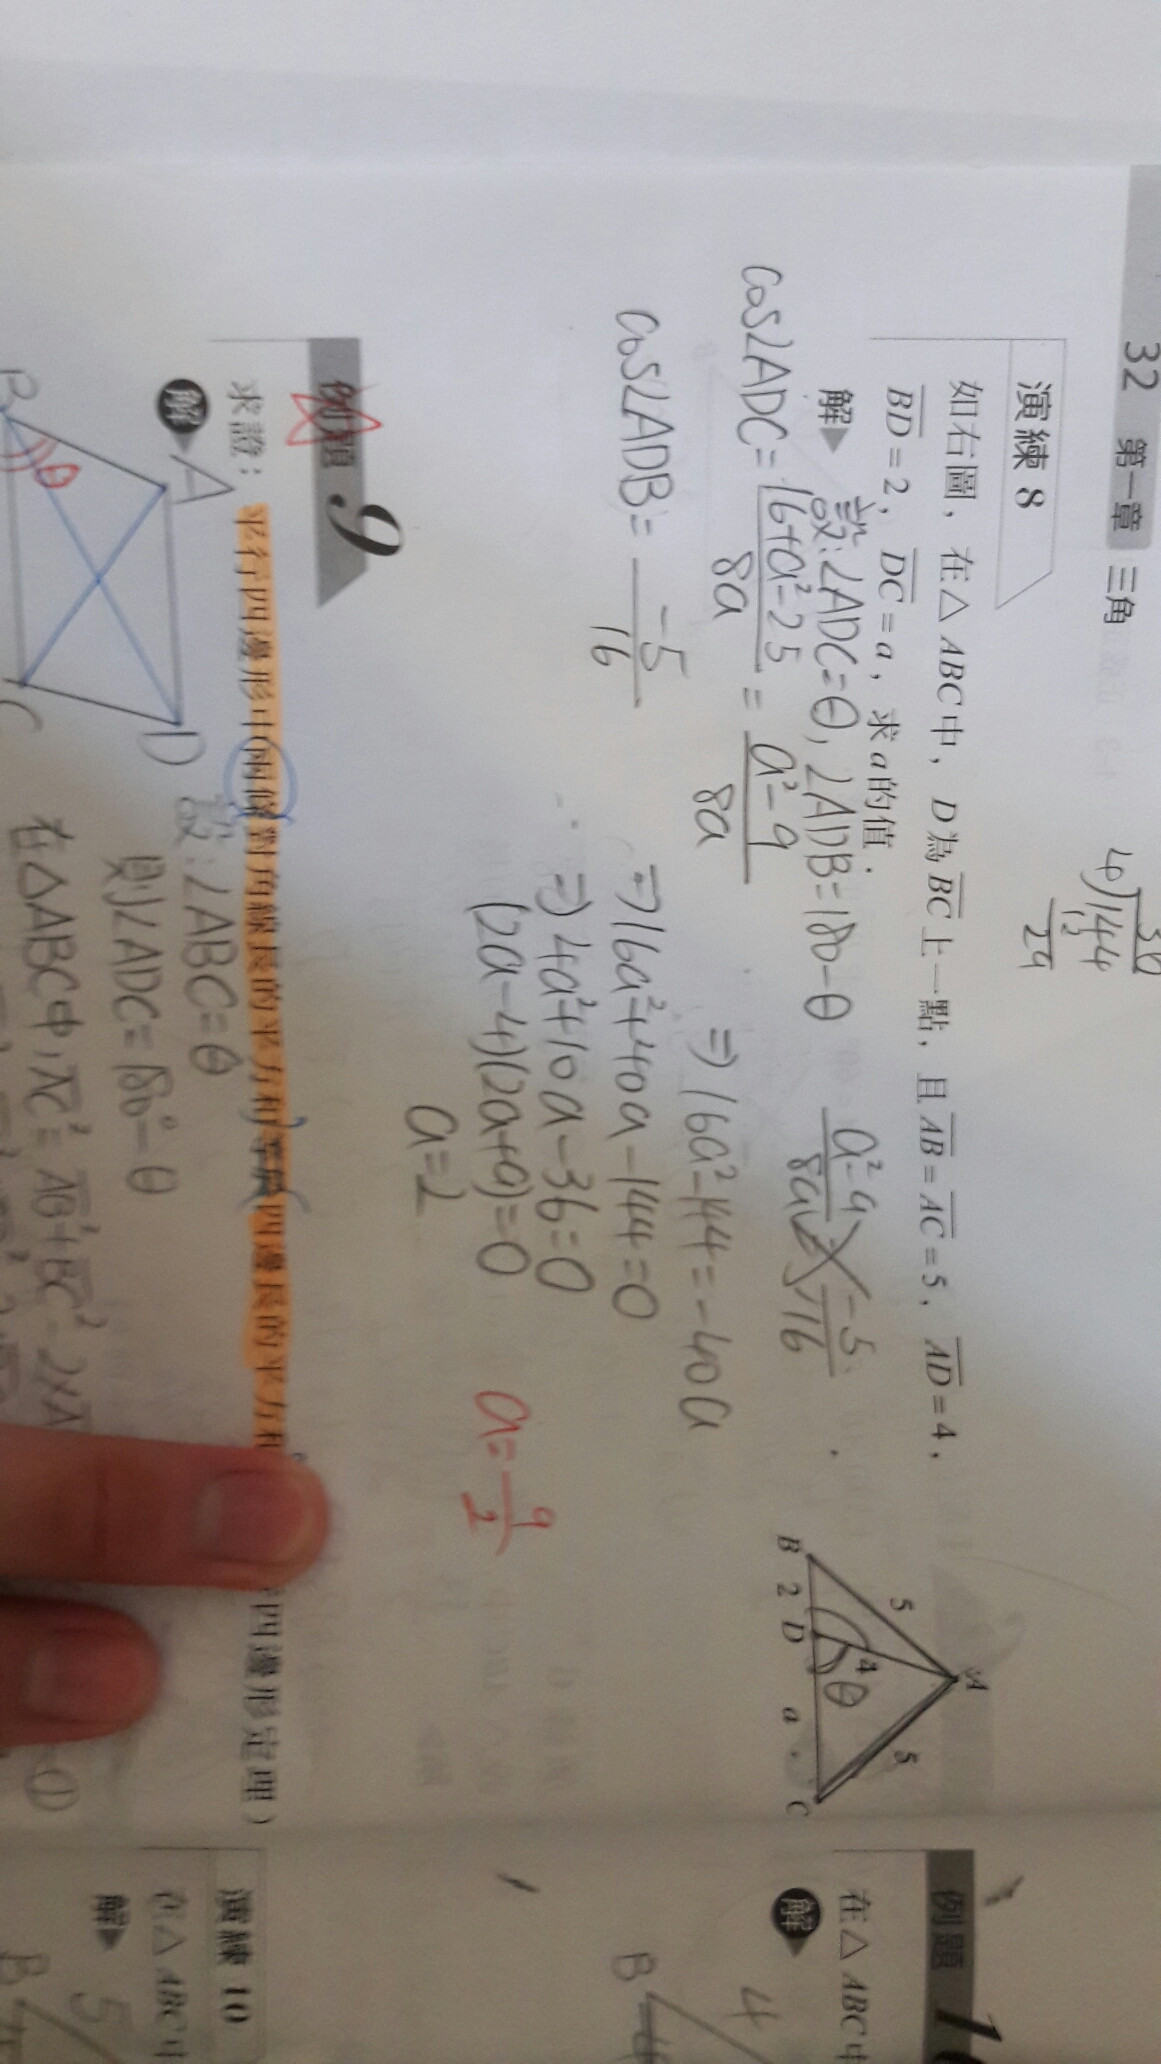 32 第一章 三角
4)144
12
24
36
演練 8
如右圖，在△ABC中，D為BC上一點，且AB=AC=5，AD=4，
BD=2，DC=a，求a的值．
解▶ 設:∠ADC=θ, ∠ADB=180-θ
cos∠ADC= 16+a²-25 / 8a = a²-9 / 8a
cos∠ADB= -5 / 16
a²-9 / 8a -5 / 16
⇒16a²-144=-40a
⇒16a²+40a-144=0
⇒4a²+10a-36=0
(2a-4)(2a+9)=0
a=2
a= 9 / 2
A
5
4
5
θ
B 2 D a C
例題 9
求證：平行四邊形中兩條對角線長的平方和等於四邊長的平方和
四邊形定理）
解 A D
B θ C
設:∠ABC=θ
則∠ADC=180°-θ
在△ABC中, AC²=AB²+BC²-2×A
①
例題 10
在△ABC中
解
4
B
演練 10
在△ABC中
解▶
5
B